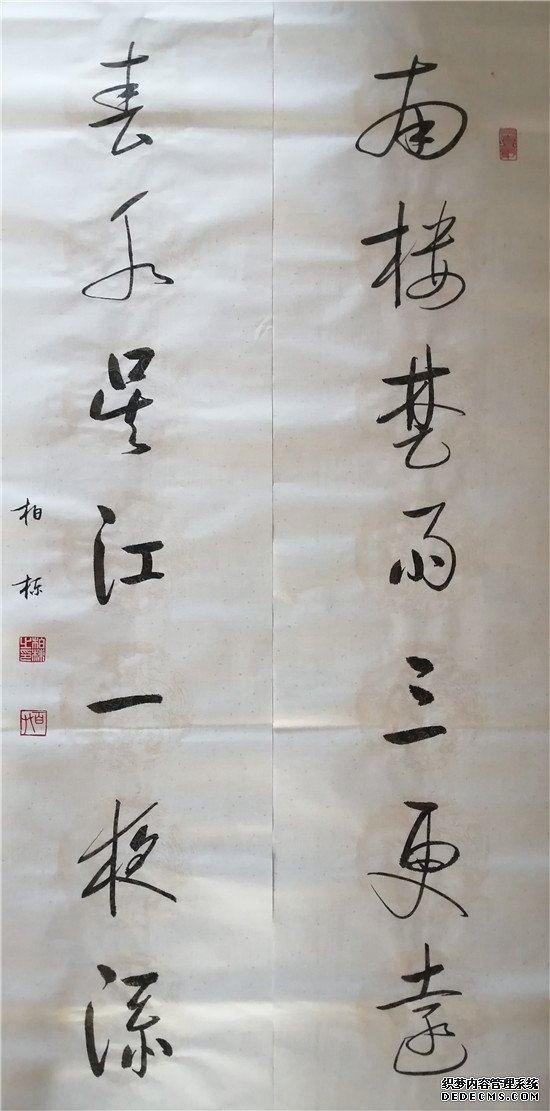 南楼楚雨三更遠
春水吴江一
柏
织梦内容管理系统
DEDECMS.COM